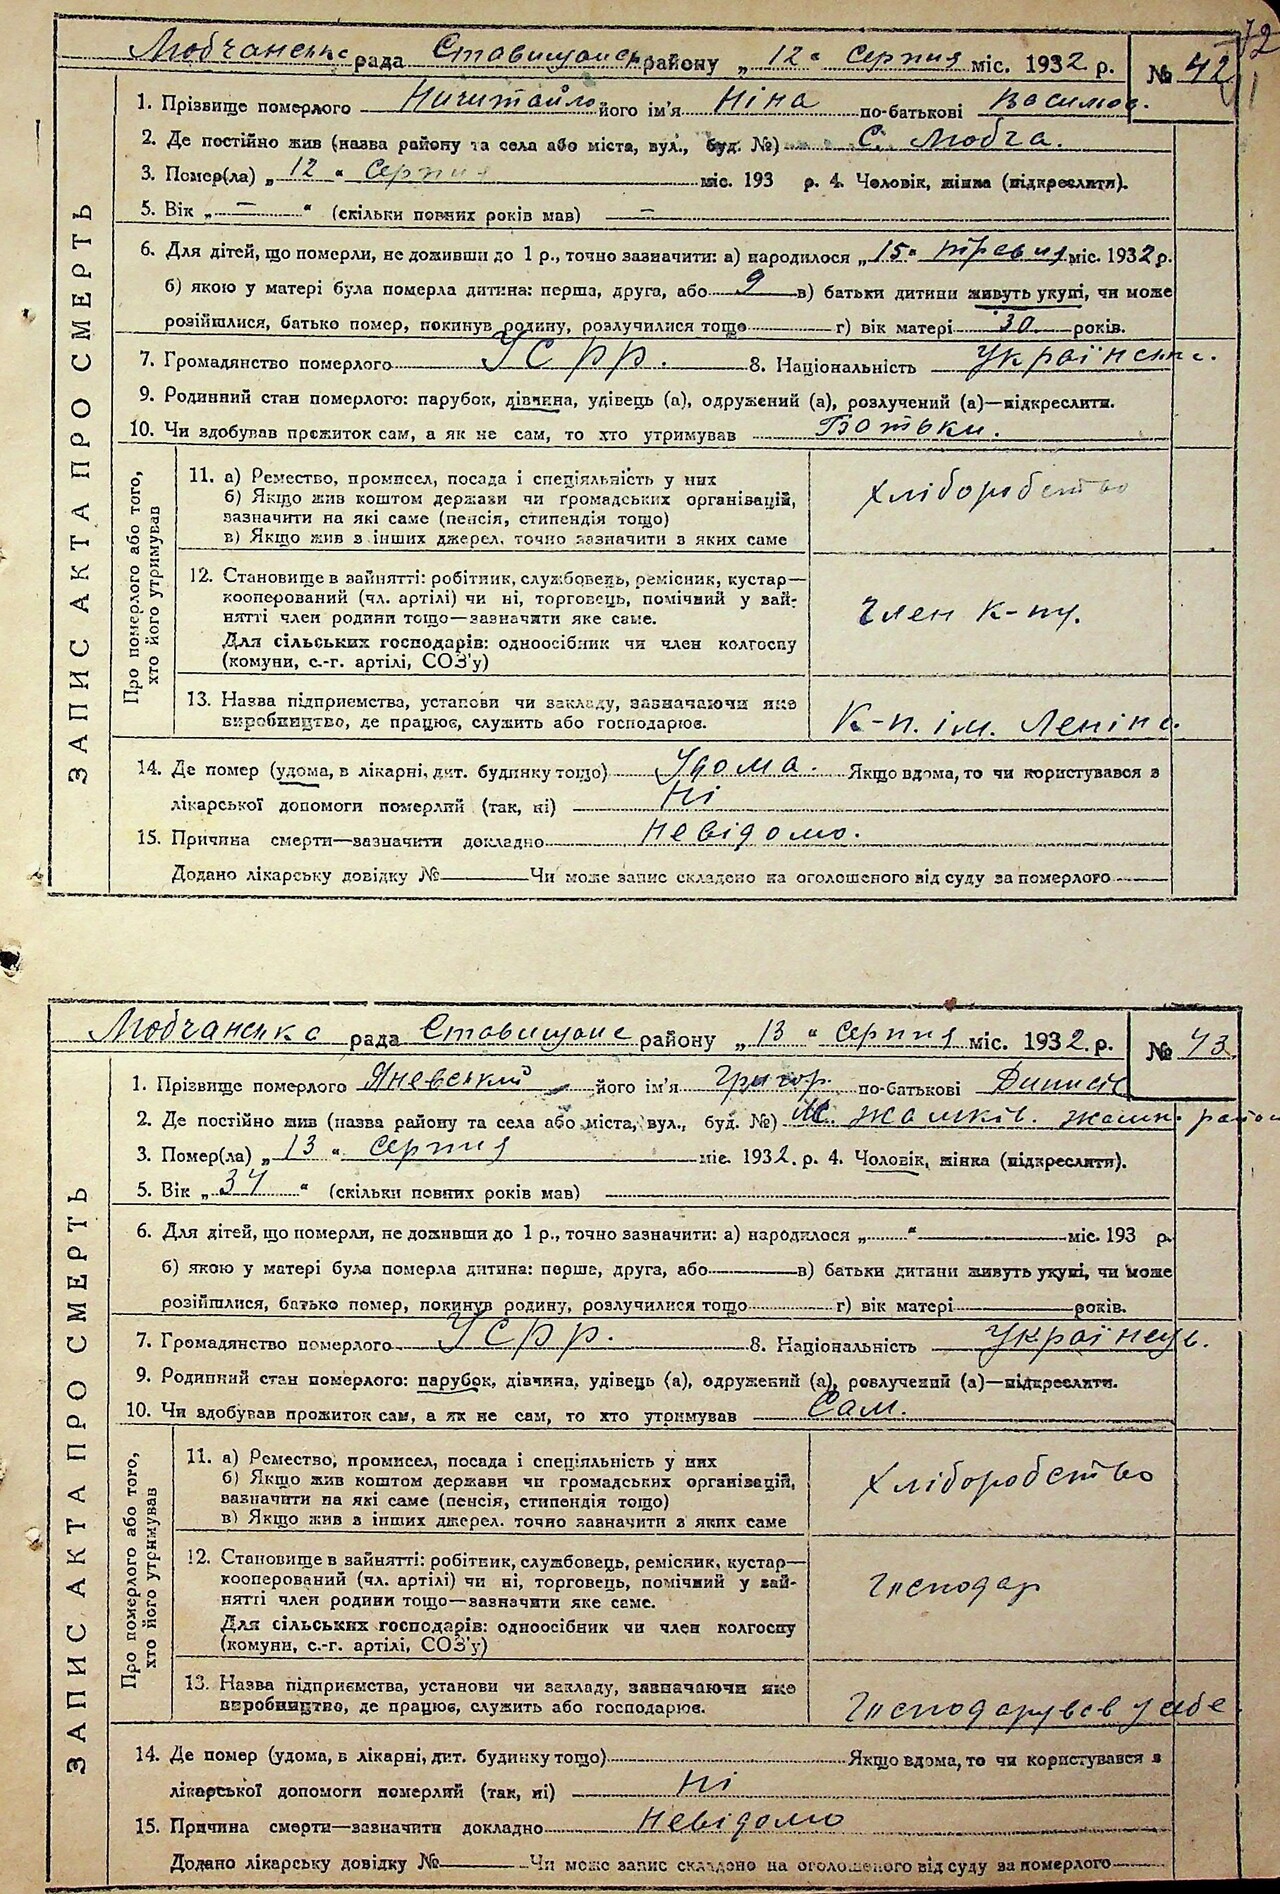 72
Любчанська рада Ставищанськ району „12" серпня міс. 1932 р. № 42
1. Прізвище померлого Ничитайло його ім'я Ніна по-батькові Василів.
2. Де постійно жив (назва району та села або міста, вул., буд. №) С. Любча.
3. Помер(ла) „12" Серпня міс. 193 р. 4. Чоловік, жінка (підкреслити).
5. Вік „—" (скільки повних років мав) —
6. Для дітей, що померли, не доживши до 1 р., точно зазначити: а) народилося „15" травня міс. 1932 р.
б) якою у матері була померла дитина: перша, друга, або 9 в) батьки дитини живуть укупі, чи може
розійшлися, батько помер, покинув родину, розлучилися тощо г) вік матері 30 років.
7. Громадянство померлого УСРР. 8. Національність Українка.
9. Родинний стан померлого: парубок, дівчина, удівець (а), одружений (а), розлучений (а)—підкреслити.
10. Чи здобував прожиток сам, а як не сам, то хто утримував Батьки.
ЗАПИС АКТА ПРО СМЕРТЬ
Про померлого або того, хто його утримував
11. а) Ремество, промисел, посада і спеціяльність у них
б) Якщо жив коштом держави чи громадських організацій,
зазначити на які саме (пенсія, стипендія тощо)
в) Якщо жив з інших джерел, точно зазначити з яких саме
хліборобство
12. Становище в зайнятті: робітник, службовець, ремісник, кустар—
кооперований (чл. артілі) чи ні, торговець, помічний у зай-
нятті член родини тощо—зазначити яке саме.
Для сільських господарів: одноосібник чи член колгоспу
(комуни, с.-г. артілі, СОЗ'у)
член к-пу.
13. Назва підприємства, установи чи закладу, зазначаючи яке
виробництво, де працює, служить або господарює.
К-п. ім. Леніна.
14. Де помер (удома, в лікарні, дит. будинку тощо) Удома. Якщо вдома, то чи користувався з
лікарської допомоги померлий (так, ні) Ні
15. Причина смерти—зазначити докладно невідомо.
Додано лікарську довідку № Чи може запис складено на оголошеного від суду за померлого
Любчанська рада Ставищанс району „13" серпня міс. 1932 р. № 43.
1. Прізвище померлого Яневський його ім'я Григор. по-батькові Динисів
2. Де постійно жив (назва району та села або міста, вул., буд. №) М. Жашків. Жашк. район
3. Помер(ла) „13" серпня міс. 1932. р. 4. Чоловік, жінка (підкреслити).
5. Вік „34" (скільки повних років мав)
6. Для дітей, що померли, не доживши до 1 р., точно зазначити: а) народилося „ " міс. 193 р.
б) якою у матері була померла дитина: перша, друга, або в) батьки дитини живуть укупі, чи може
розійшлися, батько помер, покинув родину, розлучилися тощо г) вік матері років.
7. Громадянство померлого УСРР. 8. Національність Українець.
9. Родинний стан померлого: парубок, дівчина, удівець (а), одружений (а), розлучений (а)—підкреслити.
10. Чи здобував прожиток сам, а як не сам, то хто утримував Сам.
ЗАПИС АКТА ПРО СМЕРТЬ
Про померлого або того, хто його утримував
11. а) Ремество, промисел, посада і спеціяльність у них
б) Якщо жив коштом держави чи громадських організацій,
зазначити на які саме (пенсія, стипендія тощо)
в) Якщо жив з інших джерел. точно зазначити з яких саме
хліборобство
12. Становище в зайнятті: робітник, службовець, ремісник, кустар—
кооперований (чл. артілі) чи ні, торговець, помічний у зай-
нятті член родини тощо—зазначити яке саме.
Для сільських господарів: одноосібник чи член колгоспу
(комуни, с.-г. артілі, СОЗ'у)
господар
13. Назва підприємства, установи чи закладу, зазначаючи яке
виробництво, де працює, служить або господарює.
господарував у себе
14. Де помер (удома, в лікарні, дит. будинку тощо) Якщо вдома, то чи користувався з
лікарської допомоги померлий (так, ні) Ні
15. Причина смерти—зазначити докладно невідомо
Додано лікарську довідку № Чи може запис складено на оголошеного від суду за померлого